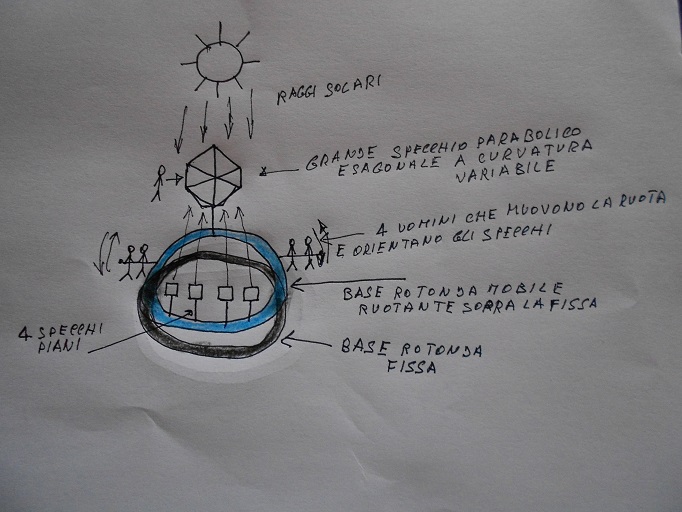 RAGGI SOLARI
GRANDE SPECCHIO PARABOLICO
ESAGONALE A CURVATURA
VARIABILE
4 UOMINI CHE MUOVONO LA RUOTA
E ORIENTANO GLI SPECCHI
BASE ROTONDA MOBILE
RUOTANTE SOPRA LA FISSA
4 SPECCHI
PIANI
BASE ROTONDA
FISSA